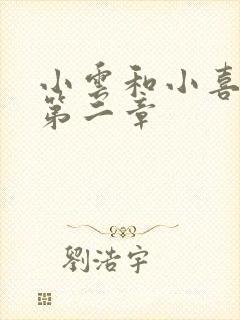 小雲和小喜
第二章
劉浩宇